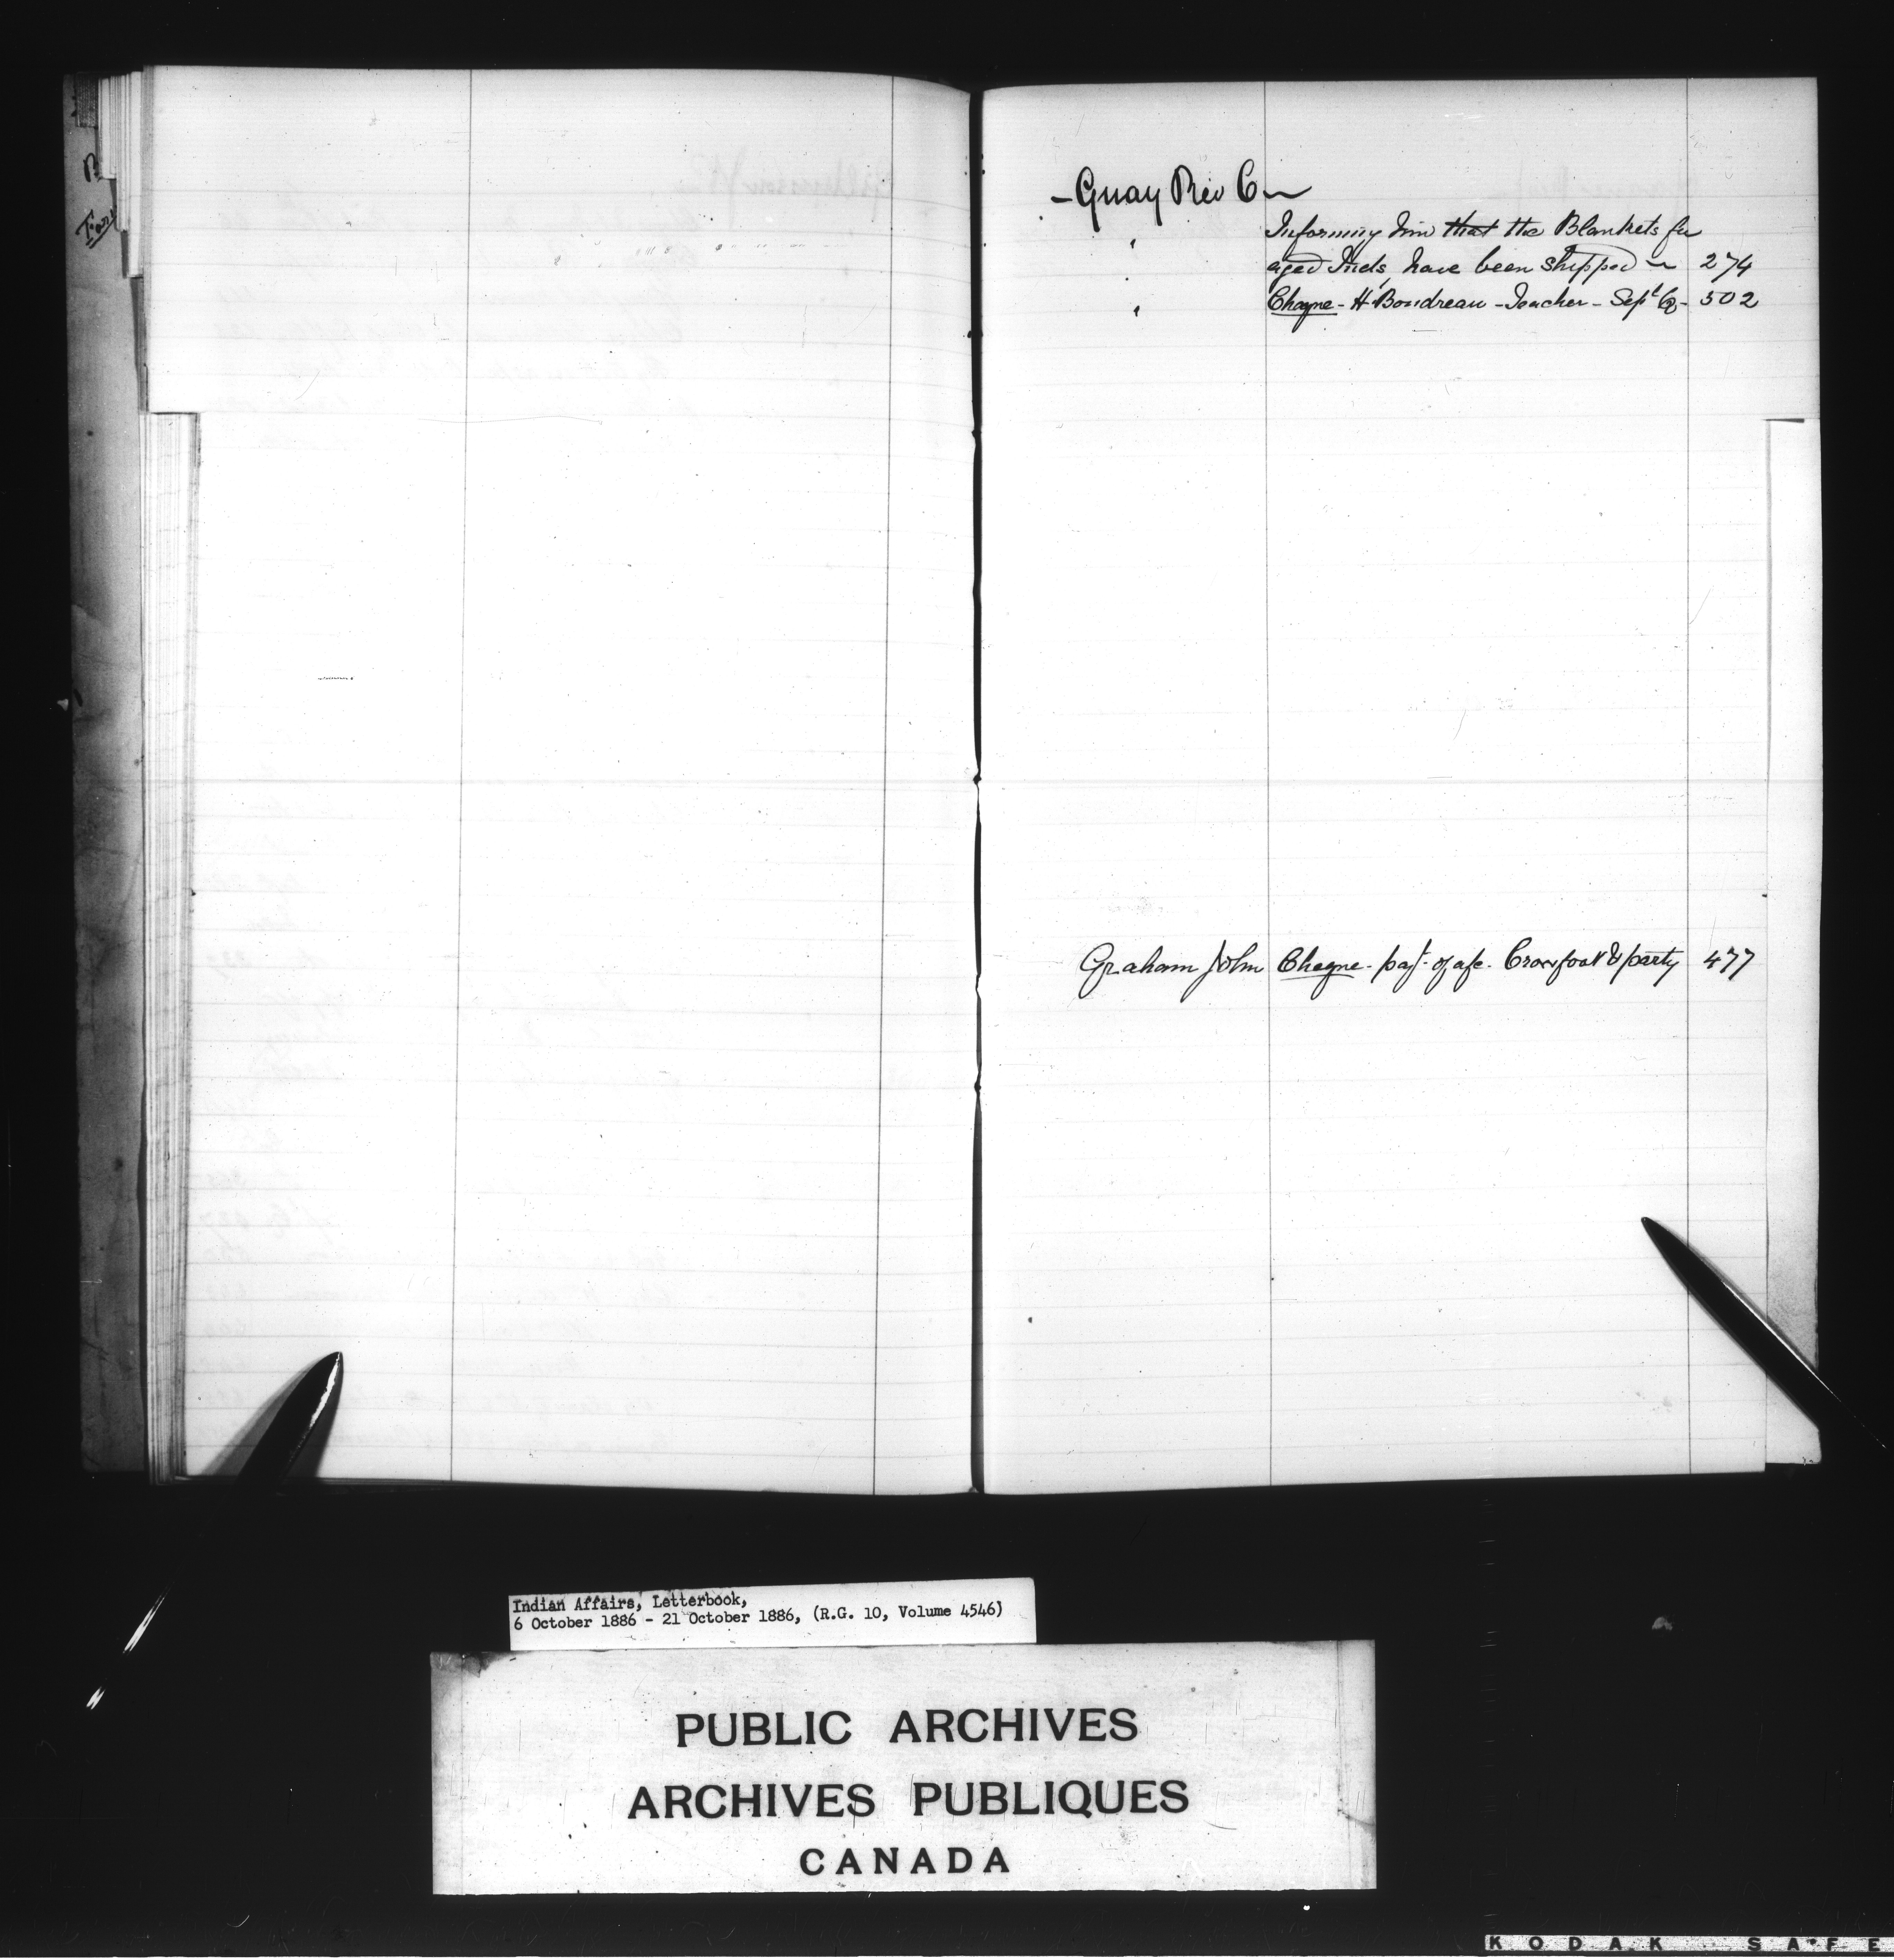 Guay Rev C
Informing him that the Blankets for
aged Inds, have been shipped 274
Cheque - H Boudreau - Teacher - Sept Qr - 502
Graham John Cheque - pay't - of a/c - Crowfoot & party 477
Indian Affairs, Letterbook,
6 October 1886 - 21 October 1886, (R.G. 10, Volume 4546)
PUBLIC ARCHIVES
ARCHIVES PUBLIQUES
CANADA
KODAK SAFE